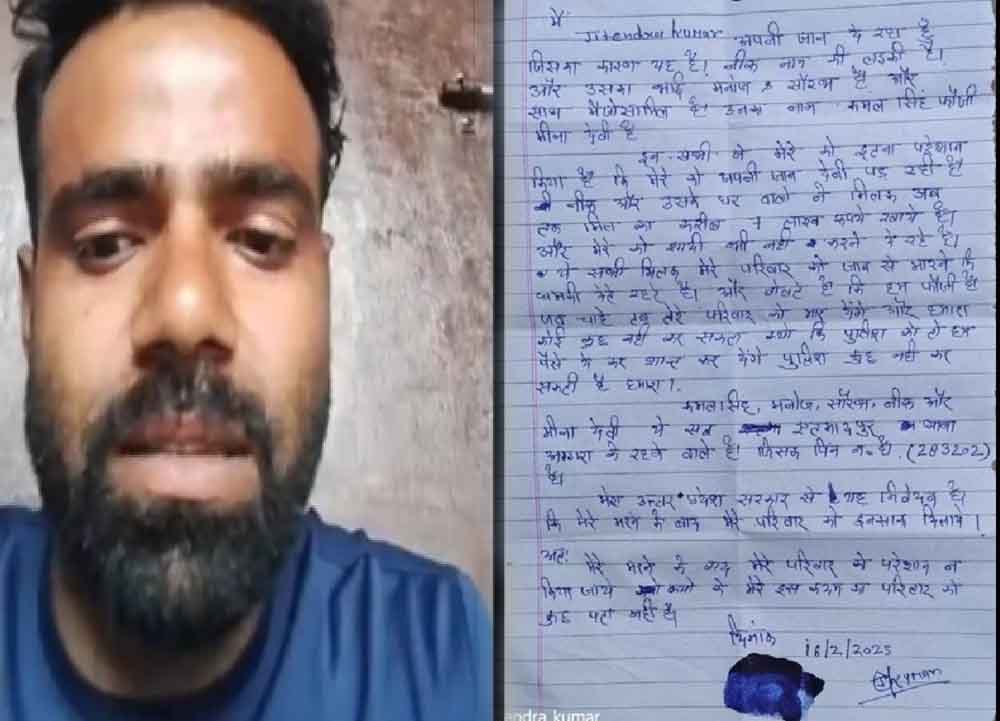 मैं Jitendra kumar अपनी जान दे रहा हूँ
जिसका कारण यह है। नीक नाम की लड़की है।
और उसका भाई मनोज & सौरभ है और
साथ में है। उनके नाम कमल सिंह फौजी
मीना देवी है
इन सभी ने मेरे को इतना परेशान
किया है कि मेरे को अपनी जान देनी पड़ रही है
नीक और उसके घर वालो ने मिलक अब
तक मिल का करीब 7 लाख रूपये खाये है।
और मेरे को शादी भी नहीं करने दे रहे है।
ये सभी मिलक मेरे परिवार को जान से मारने कि
धामकी देते रहते है। और बोलते है कि हम फौजी है
जब चाहे तब तेरे परिवार को मार देंगे और हमारा
कोई कुछ नहीं कर सकता क्यो कि पुलिस को तो हम
पैसे दे कर शान्त कर देंगे पुलिस कुछ नहीं कर
सकती है हमारा।
कमल सिंह, मनोज, सौरभ, नीक और
मीना देवी ये सब एत्मादपुर
आगरा के रहने वाले है। जिसका पिन न. है. (283202)
है।
मेरा उत्तर प्रदेश सरकार से यह निवेदन है।
कि मेरे मरने के बाद मेरे परिवार को इनसाफ दिलाये।
अतः मेरे मरने के बाद मेरे परिवार को परेशान न
किया जाये क्यो के मेरे इस कदम का परिवार को
कुछ पता नहीं है।
दिनांक 16/2/2025
andra kumar